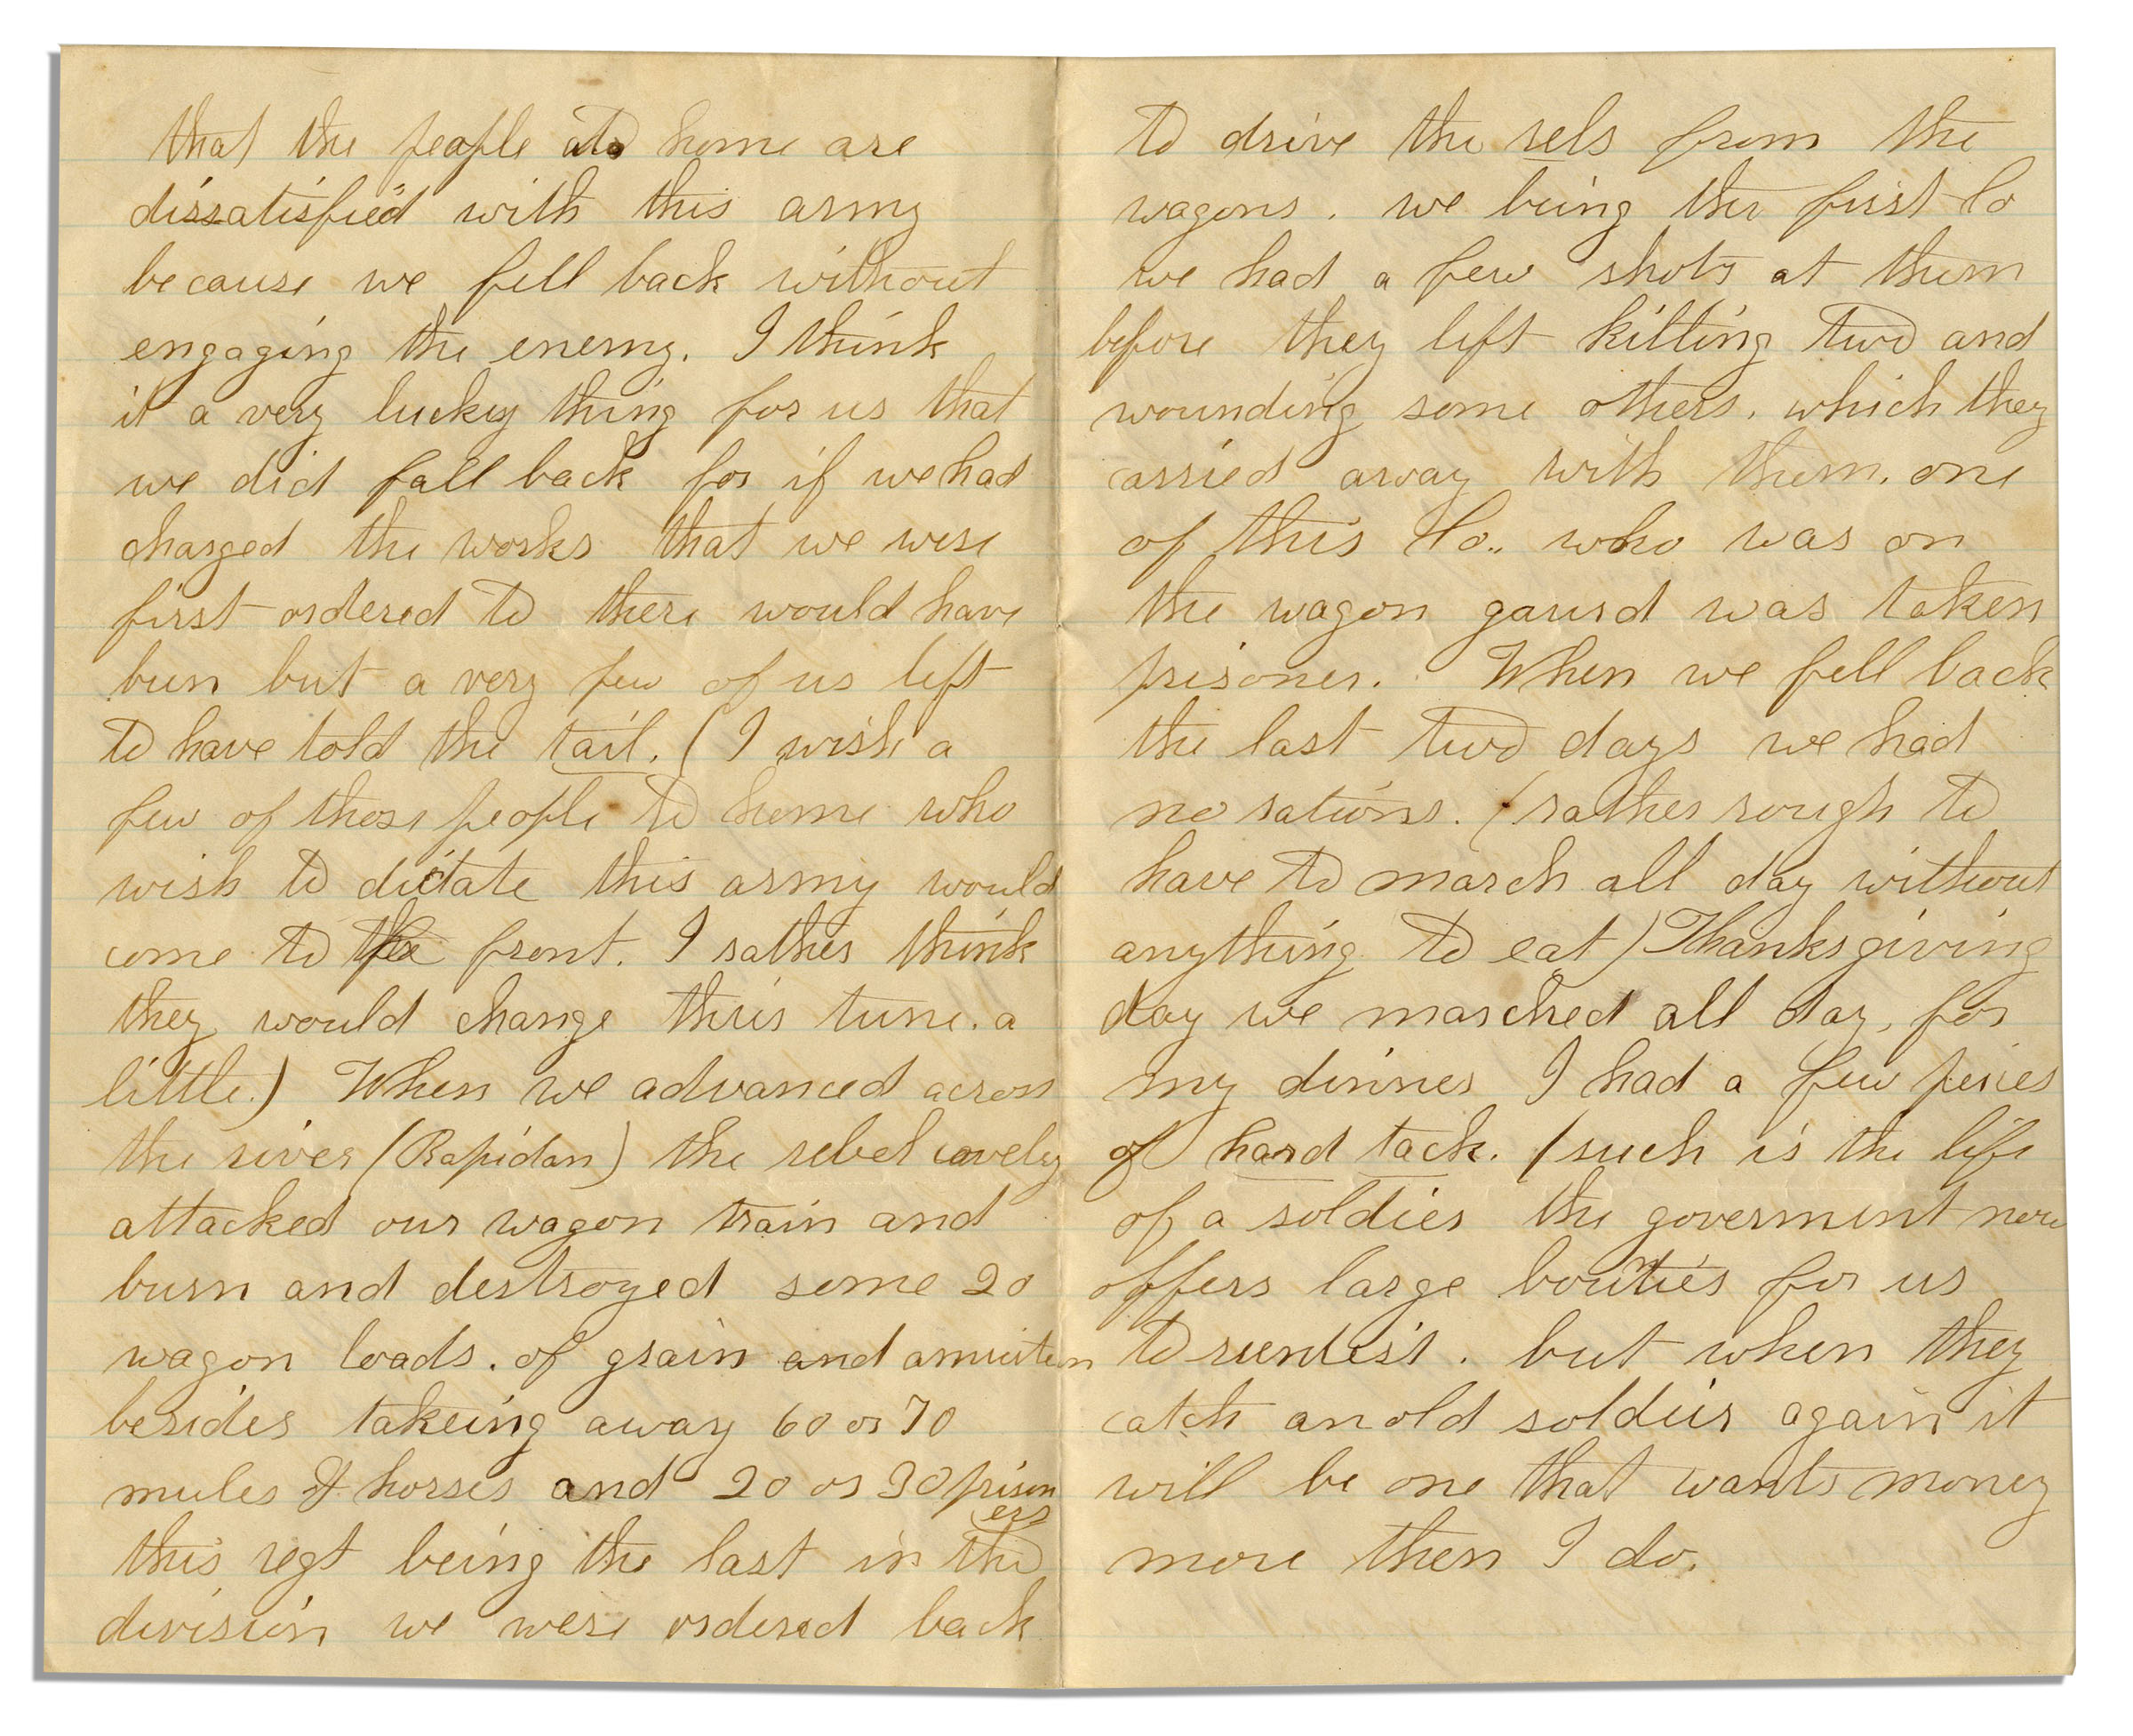 that the people at home are
dissatisfied with this army
because we fell back without
engaging the enemy. I think
it a very lucky thing for us that
we did fall back for if we had
charged the works that we were
first ordered to there would have
bun but a very few of us left
to have told the tail. (I wish a
few of those people to home who
wish to dictate this army would
come to the front. I rather think
they would change their tune. a
little.) When we advanced across
the river (Rapidan) the rebel cavelry
attacked our wagon train and
burn and destroyed some 20
wagon loads. of grain and
besides takeing away 60 or 70
mules & horses and 20 or 30 prison
ers
this regt being the last in the
division we were ordered back
to drive the rebs from the
wagons. we being the first Co
we had a few shots at them
before they left killing two and
wounding some others. which they
carried away with them. one
of this Co.. who was on
the wagon gaurd was taken
prisoner. When we fell back
the last two days we had
no rations. (rather rough to
have to march all day without
anything to eat) Thanksgiving
day we marched all day, for
my dinner I had a few peices
of hard tack. (such is the life
of a soldier the goverment now
offers large bounties for us
to reenlist. but when they
catch an old soldier again it
will be one that wants money
more then I do.